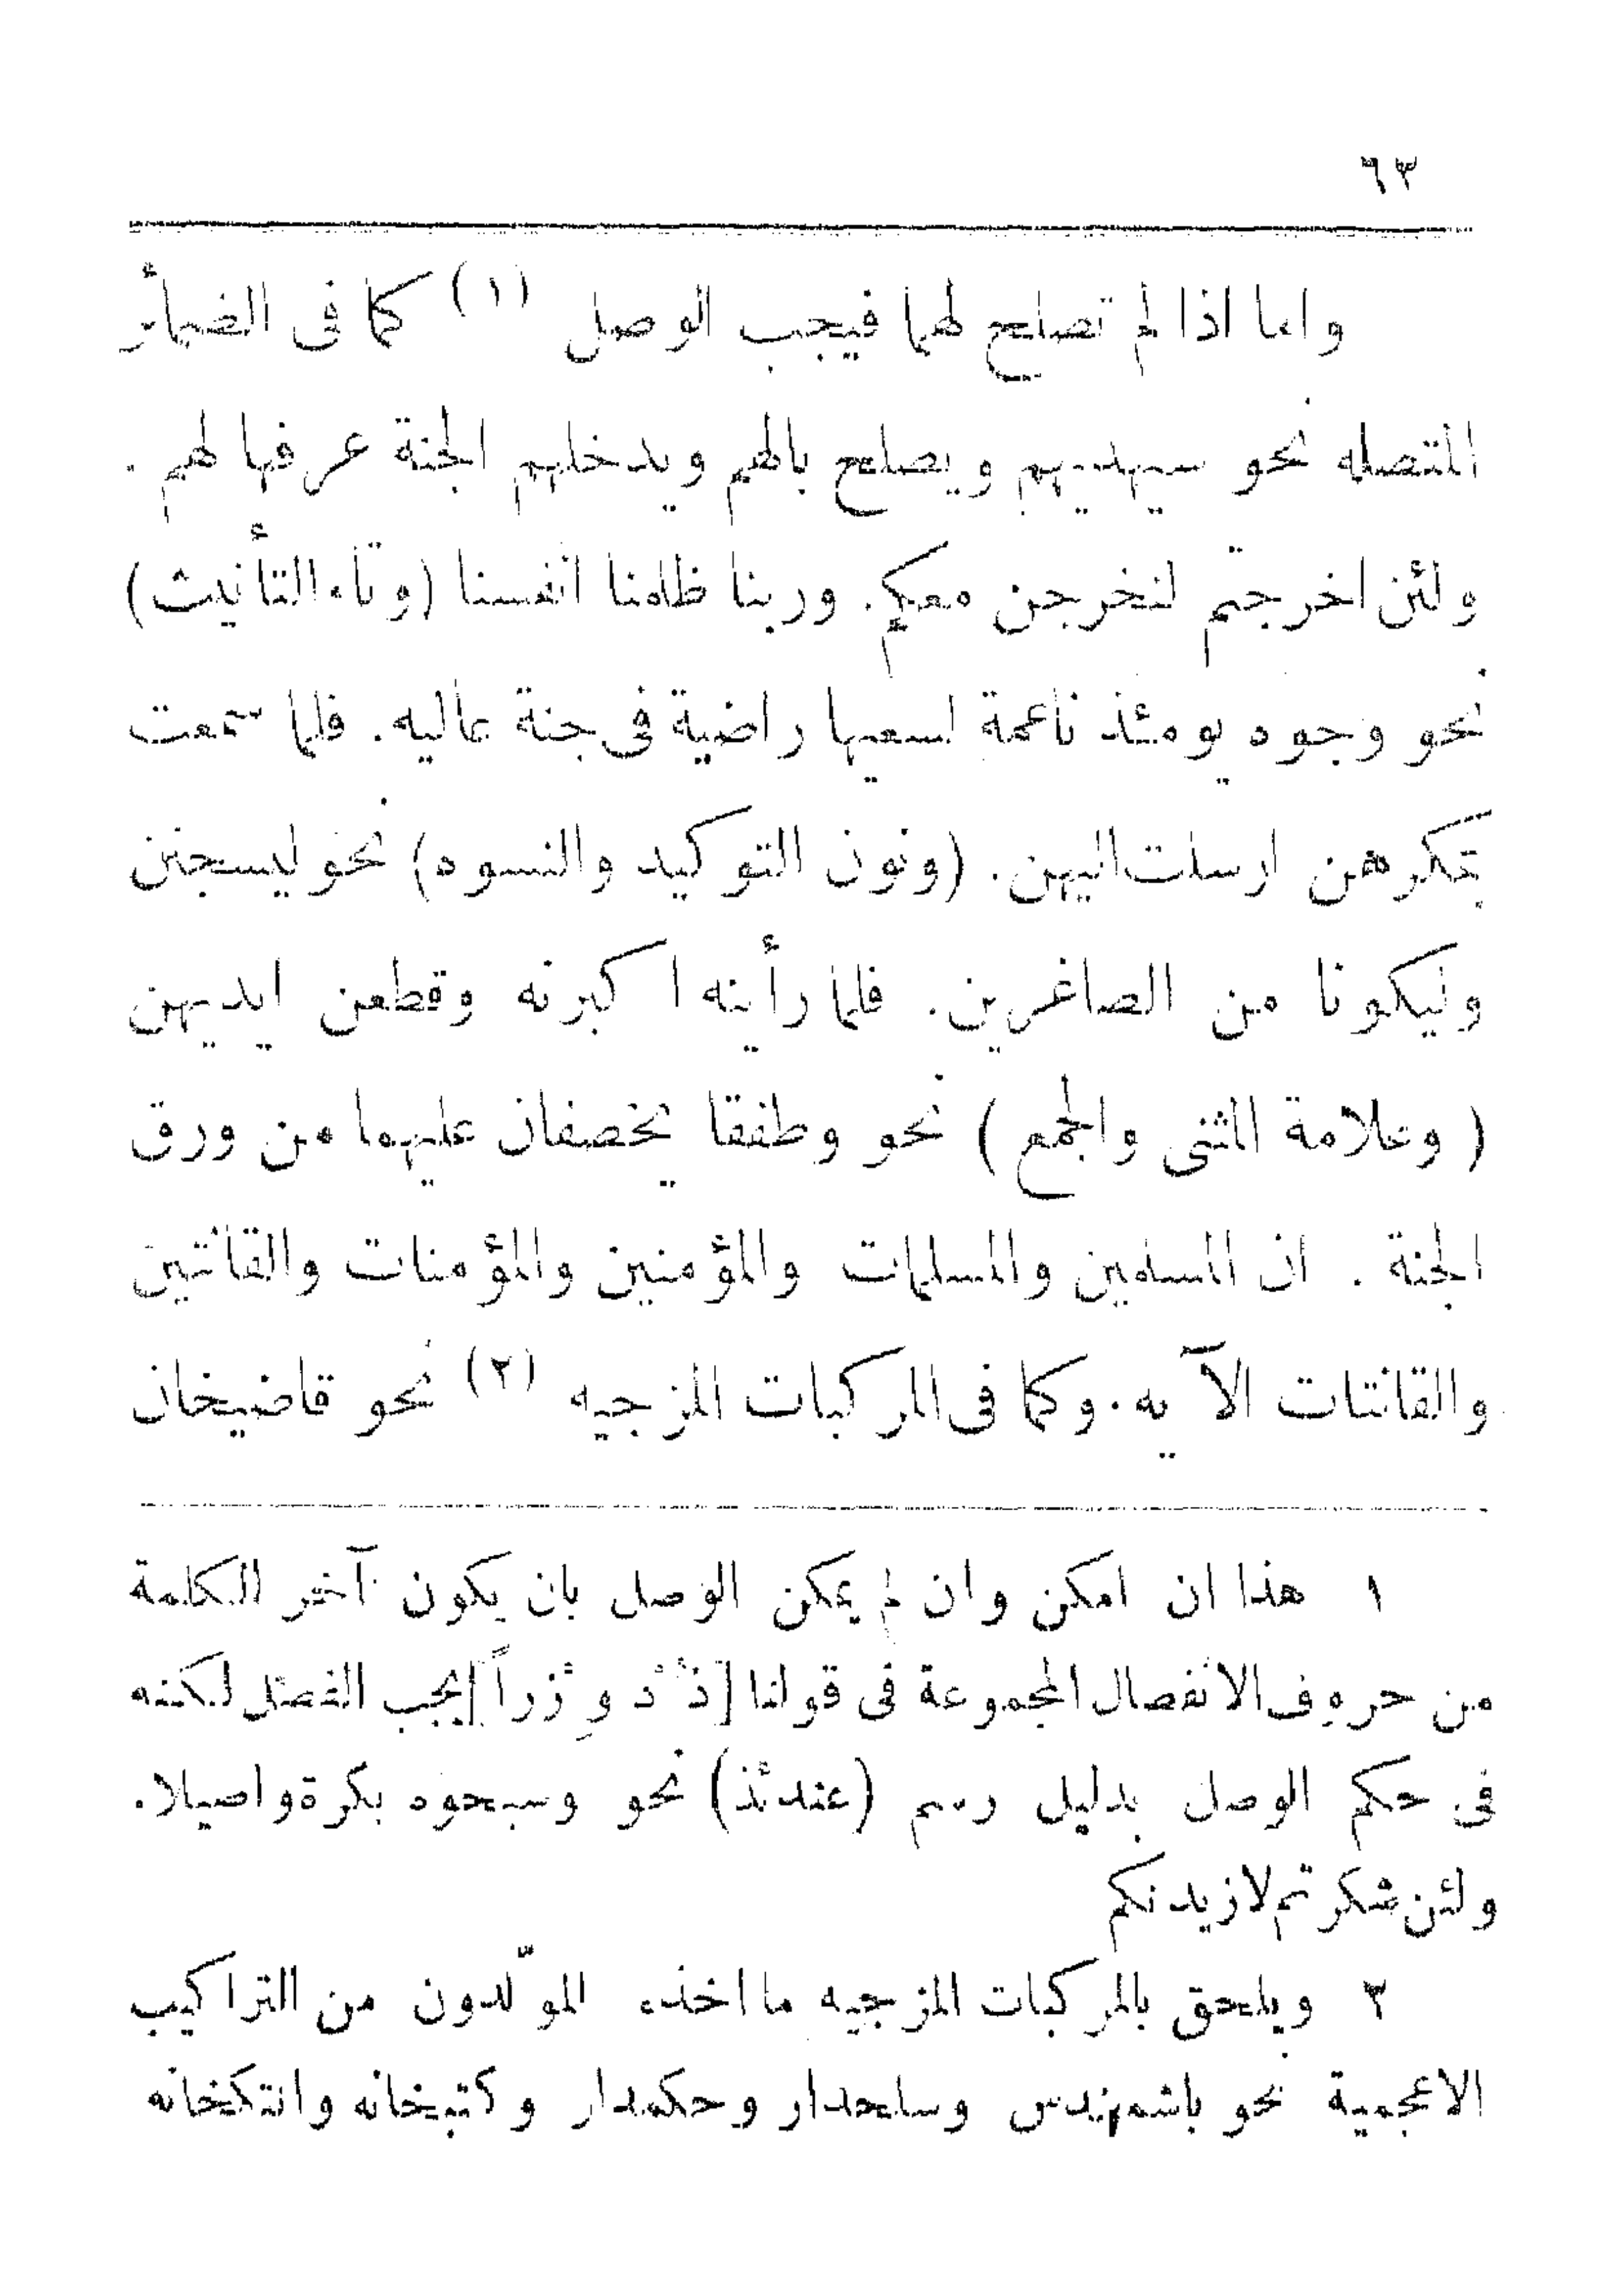 ٦٣
واما اذا لم تصلح لهما فيجب الوصل (١) كما فى الضمائر
المتصله نحو سيهديهم ويصلح بالهم ويدخلهم الجنة عرفها لهم .
ولئن اخرجتم لنخرجن معكم. وربنا ظلمنا انفسنا (وتاء التأنيث)
نحو وجوه يومئذ ناعمة لسعيها راضية فى جنة عاليه. فلما سمعت
بمكرهن ارسلت اليهن. (ونون التوكيد والنسوه) نحو ليسجنن
وليكونا من الصاغرين. فلما رأينه اكبرنه وقطعن ايديهن
( وعلامة المثنى والجمع ) نحو وطفقا يخصفان عليهما من ورق
الجنة . ان المسلمين والمسلمات والمؤمنين والمؤمنات والقانتين
والقانتات الآيه. وكما فى المركبات المزجيه (٢) نحو قاضيخان
١ هذا ان امكن وان لم يمكن الوصل بان يكون آخر الكلمة
من حروف الانفصال المجموعة فى قولنا [ذُدْ وِزْراً] يجب الفصل لكنه
فى حكم الوصل بدليل رسم (عندئذ) نحو وسبحوه بكرة واصيلا.
ولئن شكرتم لازيدنكم
٢ ويلحق بالمركبات المزجيه ما اخذه المولّدون من التراكيب
الاعجمية نحو باشمهندس وسلحدار وحكمدار وكتبخانه وانتكخانه